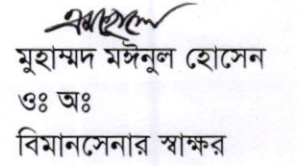 মুহাম্মদ মঈনুল হোসেন
ওঃ অঃ
বিমানসেনার স্বাক্ষর